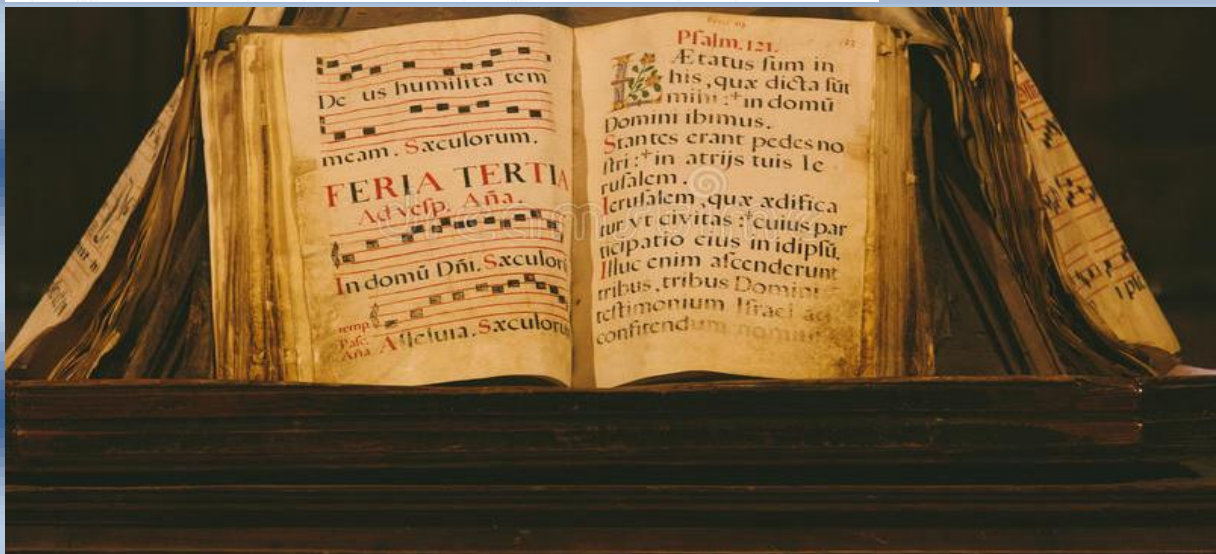 De us humilita tem
meam. Sæculorum.
FERIA TERTIA
Ad vesp. Aña.
In domū Dñi. Sæculoru
temp.
Pasc.
Aña Alleluia. Sæculoru
Psalm. 121.
LÆtatus sum in
his, quæ dicta sūt
mihi :⁺ in domū
Domini ibimus.
Stantes erant pedes no
stri :⁺ in atrijs tuis Ie
rusalem.
Ierusalem, quæ ædifica
tur vt civitas :⁺ cuius par
ticipatio eius in idipsū.
Illuc enim ascenderunt
tribus, tribus Domini
testimonium Israel ad
confitendum nomini